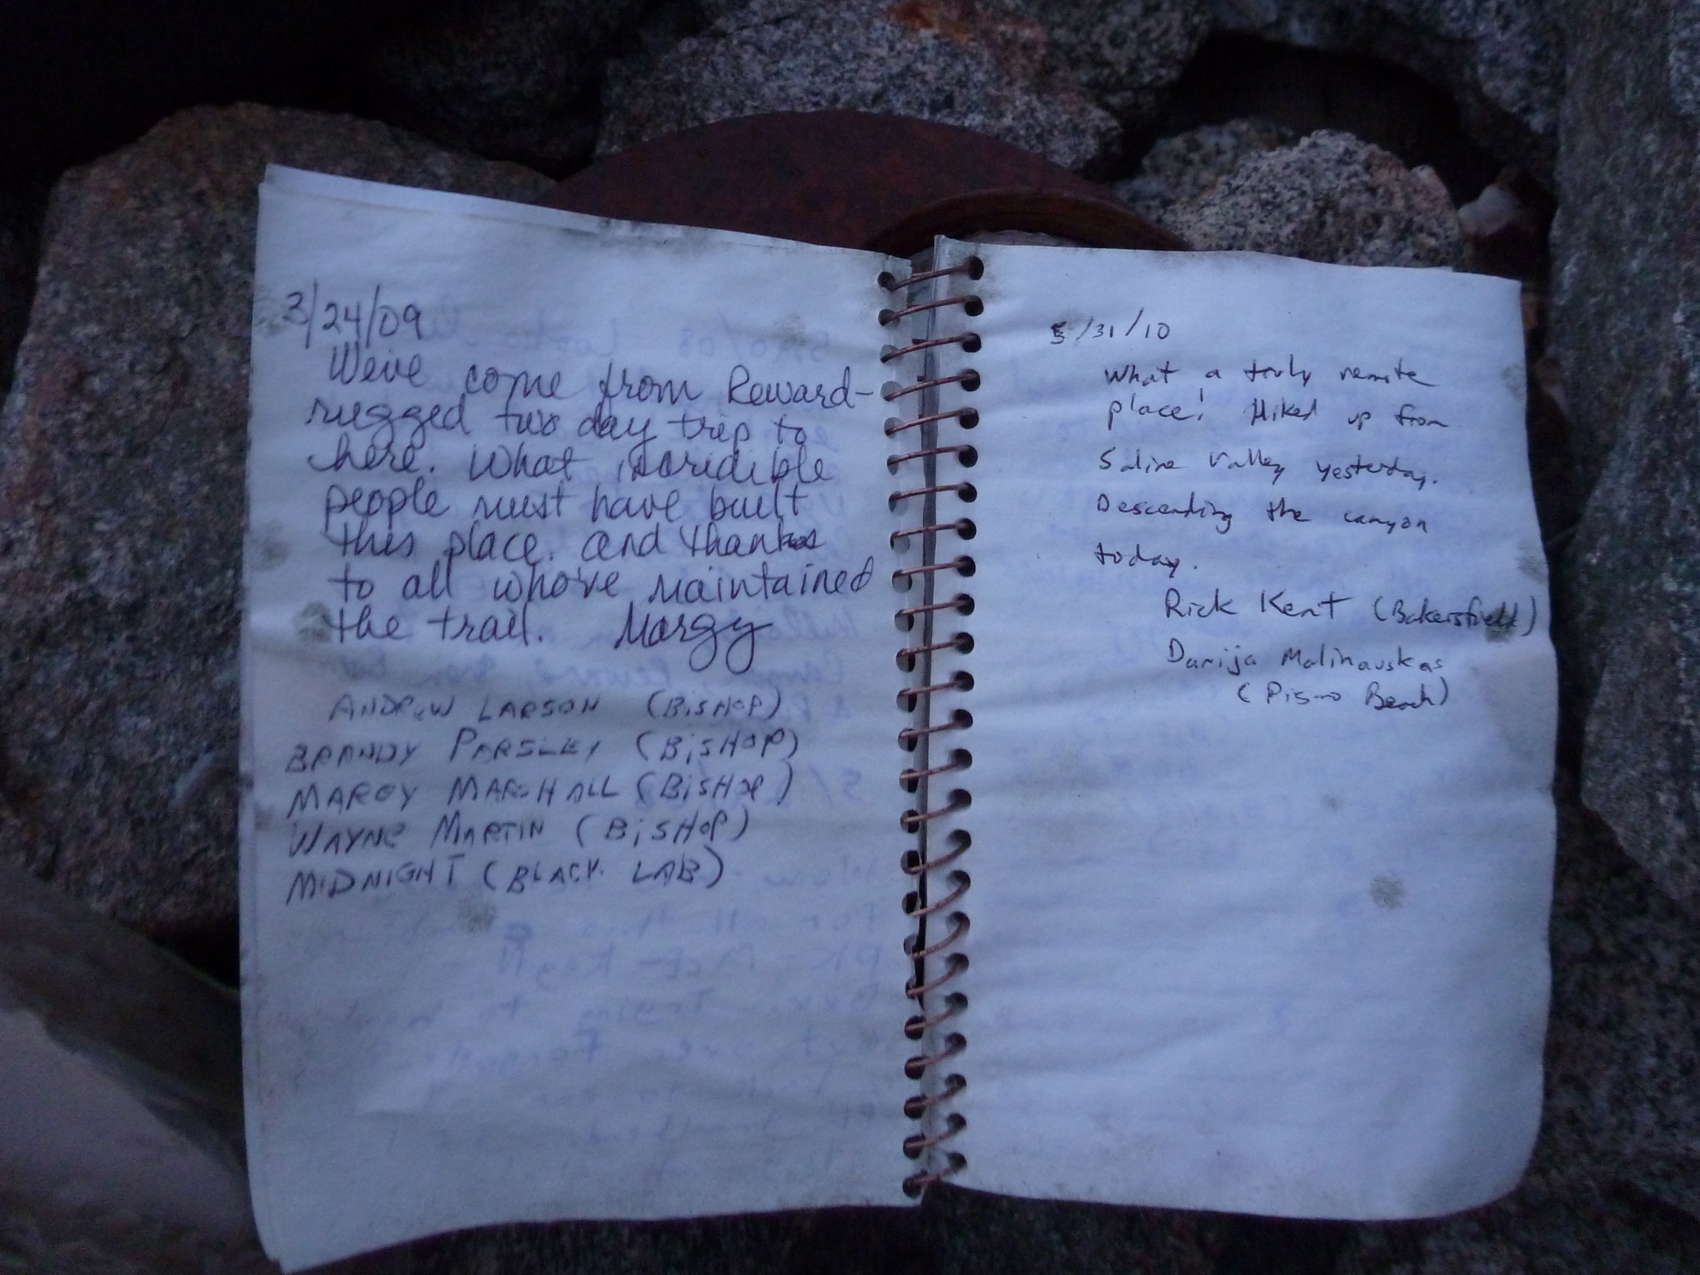 3/24/09
We've come from Reward-
rugged two day trip to
here. What incredible
people must have built
this place. and thanks
to all who've maintained
the trail. Margy
ANDREW LARSON (BISHOP)
BRANDY PARSLEY (BISHOP)
MARGY MARSHALL (BISHOP)
WAYNE MARTIN (BISHOP)
MIDNIGHT (BLACK LAB)
5/31/10
What a truly remote
place! Hiked up from
Saline Valley yesterday.
Descending the canyon
today.
Rick Kent (Bakersfield)
Danija Malinauskas
(Pismo Beach)